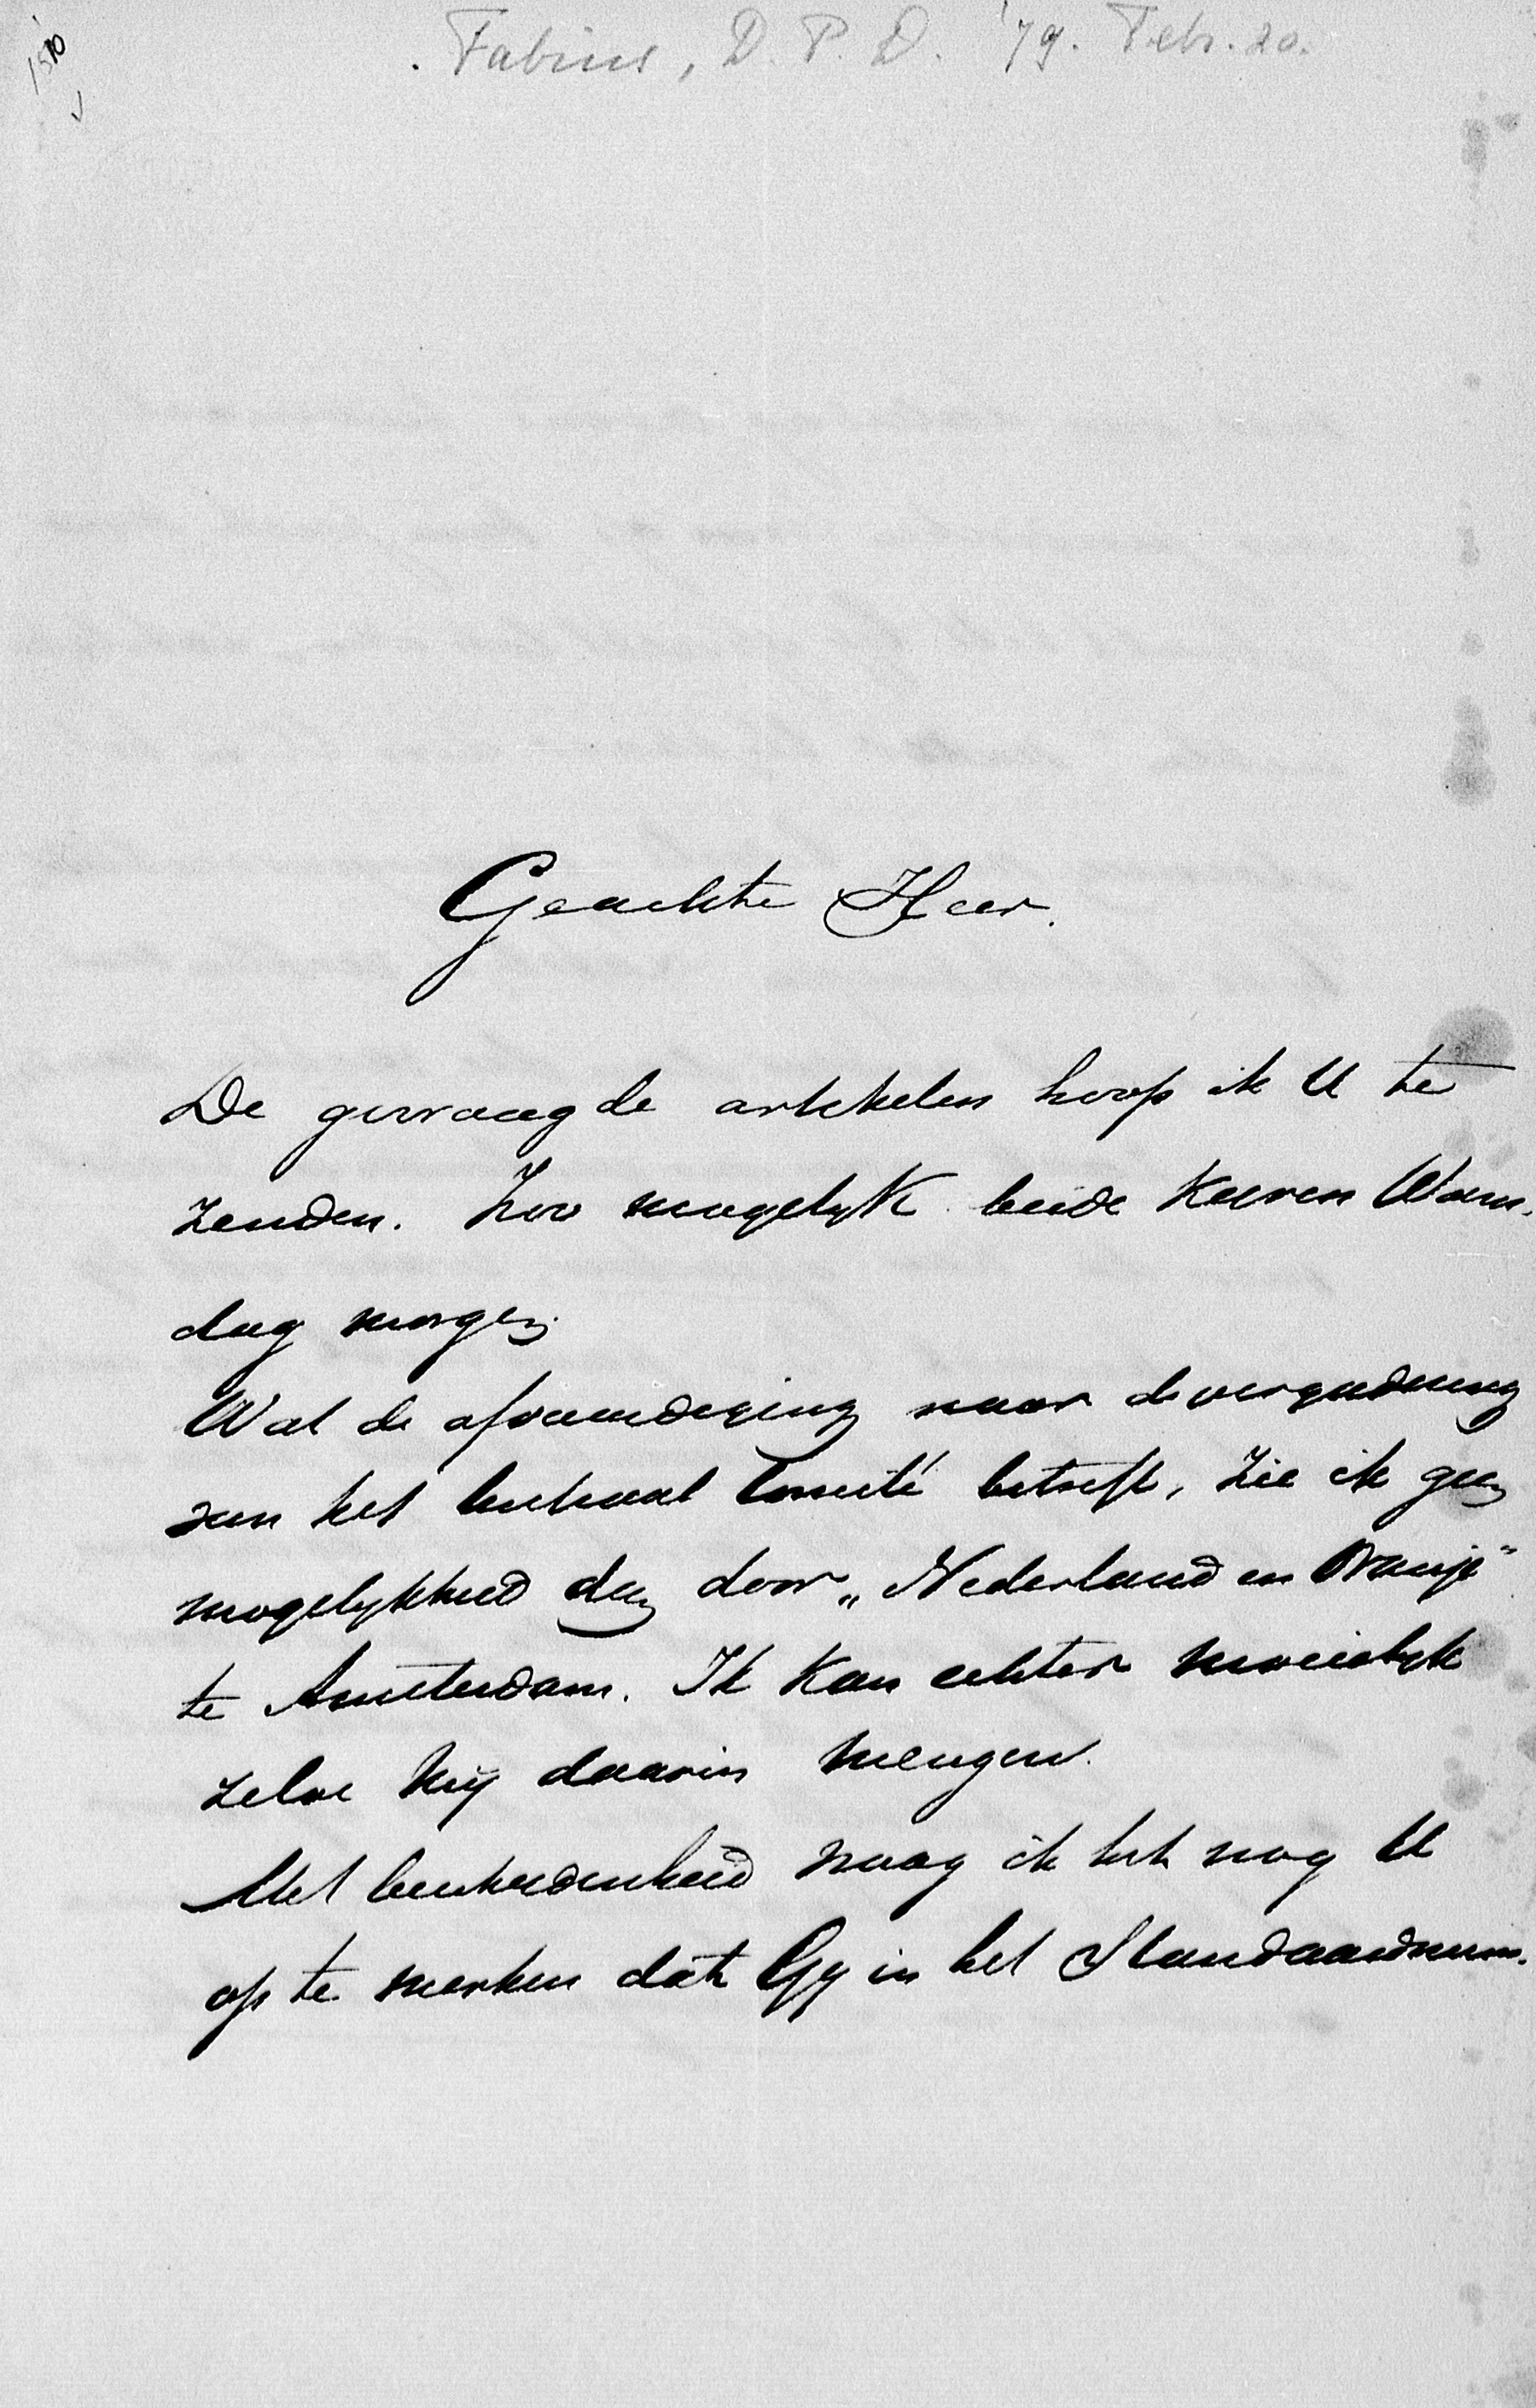 1510
Fabius, D. P. D. '79. Febr. 20.
Geachte Heer.
De gevraagde artikelen hoop ik U te
zenden. Zoo mogelijk beide keeren Woens-
dag morgen.
Wat de afvaardiging naar de vergadering
van het Centraal Comité betreft, zie ik geen
mogelijkheid dan door „Nederland en Oranje"
te Amsterdam. Ik kan echter moeielijk
zelve mij daarin mengen.
Met bescheidenheid waag ik het nog U
op te merken dat Gij in het Standaardnum-